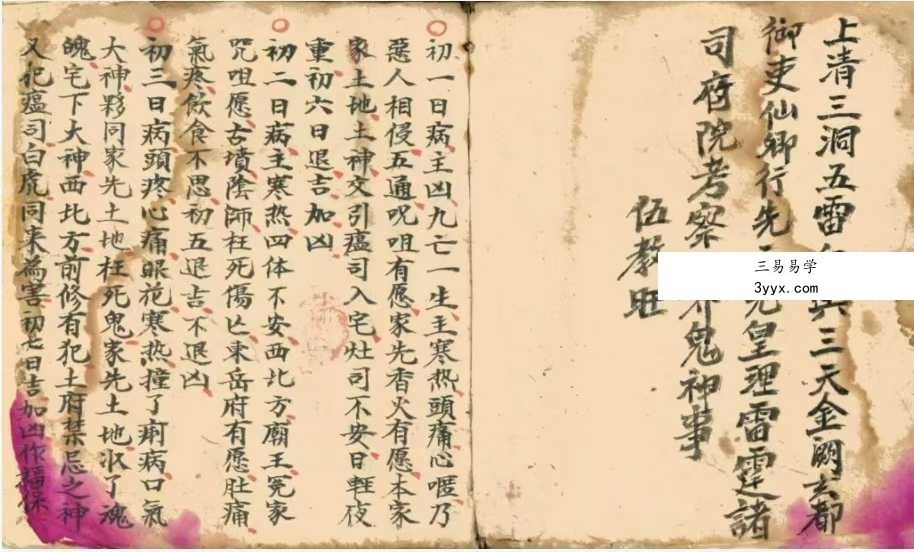 上清三洞五雷三天金闕玄都
御吏仙卿行先元皇理雷霆諸
司府院考察界鬼神事
伍教旺
三易易学
3yyx.com
初一日病主凶九亡一生主寒热頭痛心哐乃
惡人相侵五通呪咀有愿家先香火有愿本家
家土地土神交引瘟司入宅灶司不安日輊夜
重初六日退吉加凶
初二日病主寒热四体不安西北方廟王冤家
咒咀愿古墳陰師枉死傷亡東岳府有愿肚痛
氣疼飲食不思初五退吉不退凶
初三日病頭疼心痛眼花寒热撞了痢病口氣
大神夥同家先土地枉死鬼家先土地收了魂
魄宅下大神西北方前修有犯土府禁忌之神
又犯瘟司白虎同来為害初七日吉加凶作福保